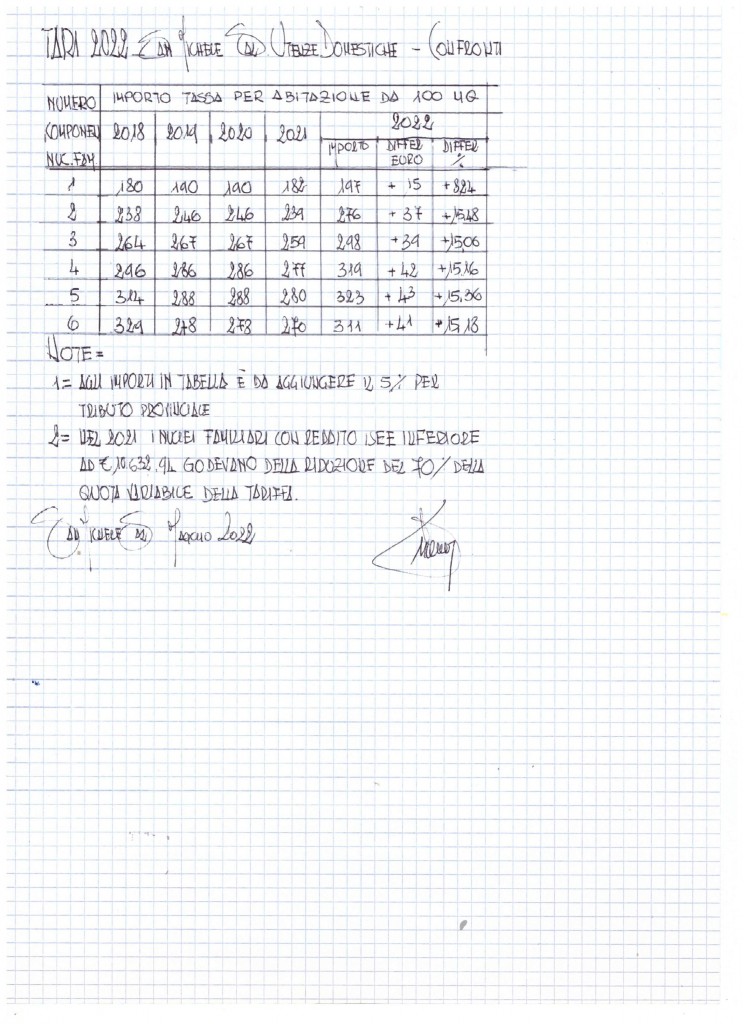 TARI 2022 SAN MICHELE SAL. UTENZE DOMESTICHE - CONFRONTI
NUMERO IMPORTO TASSA PER ABITAZIONE DA 100 MQ
COMPONEN 2018 2019 2020 2021 2022
NUC. FAM IMPORTO DIFFER EURO DIFFER %
1 180 190 190 182 197 + 15 +8,24
2 238 246 246 239 276 + 37 +15,48
3 264 267 267 259 298 +39 +15,06
4 296 286 286 277 319 +42 +15,16
5 314 288 288 280 323 +43 +15,36
6 329 278 278 270 311 +41 +15,18
NOTE =
1= AGLI IMPORTI IN TABELLA È DA AGGIUNGERE IL 5% PER
TRIBUTO PROVINCIALE
2= NEL 2021 I NUCLEI FAMILIARI CON REDDITO ISEE INFERIORE
AD € 10.632,94 GODEVANO DELLA RIDUZIONE DEL 70% DELLA
QUOTA VARIABILE DELLA TARIFFA.
SAN MICHELE SAL. MAGGIO 2022